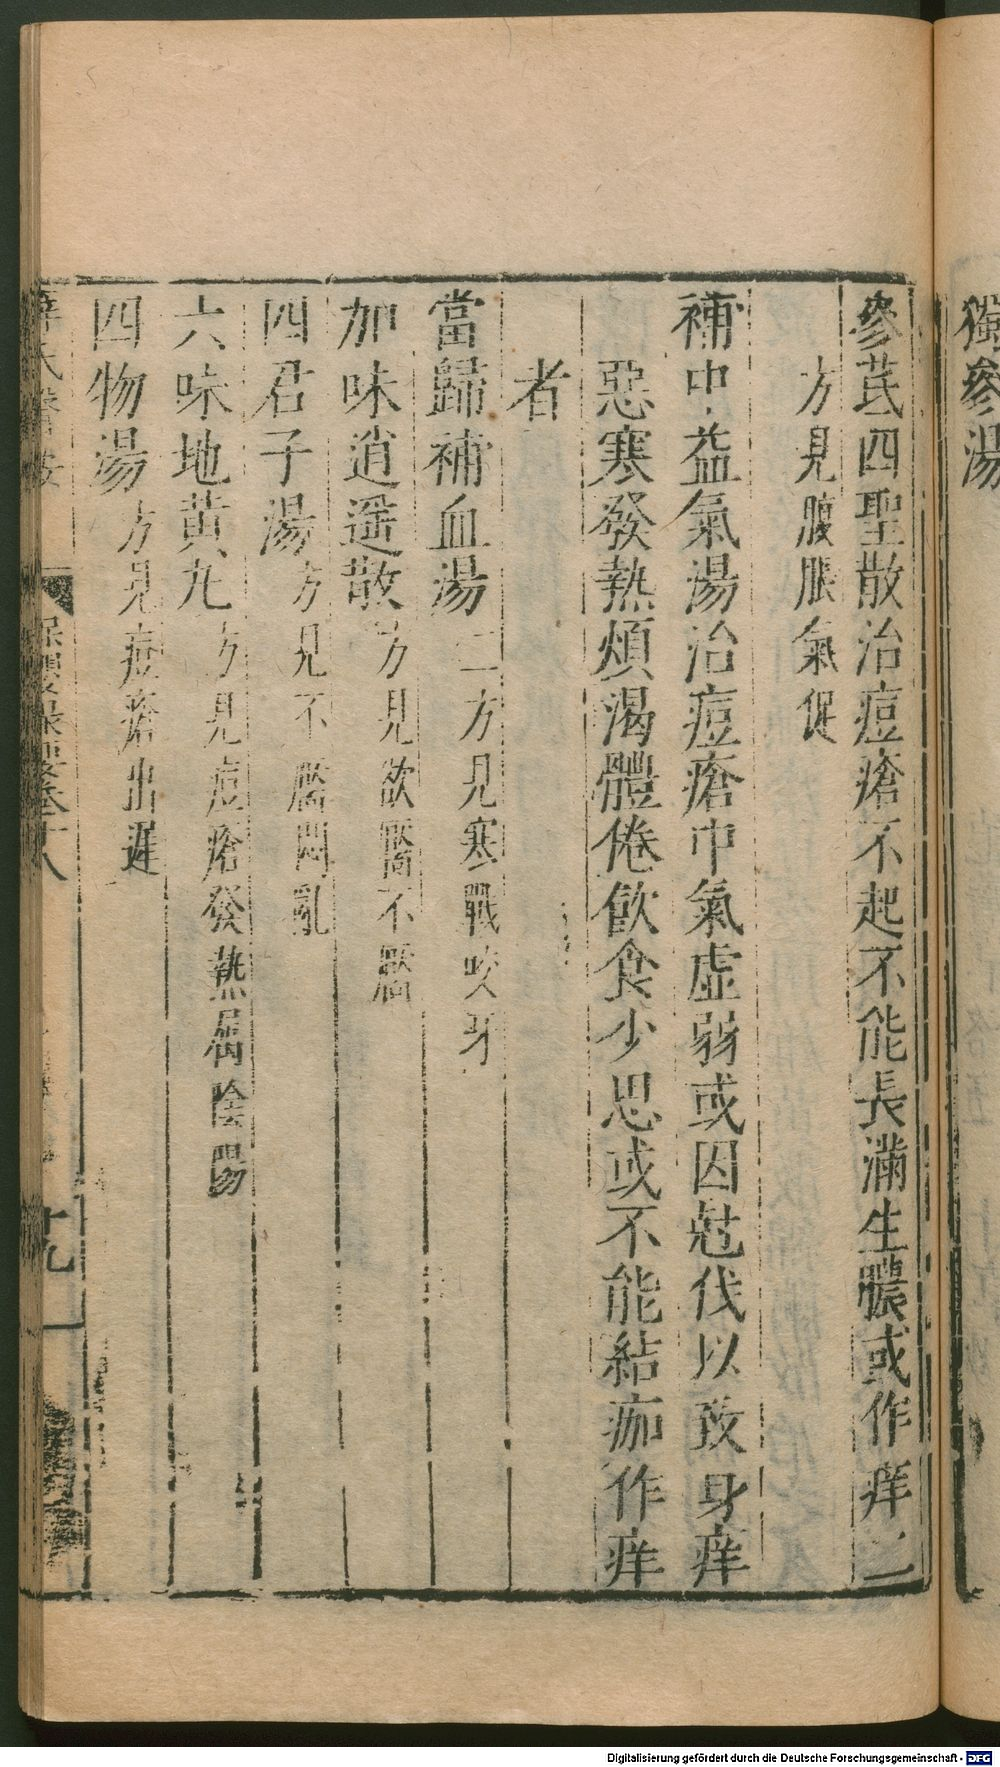 獨參湯
參芪四聖散治痘瘡不起不能長滿生膿或作痒二
方見腹脹氣促
補中益氣湯治痘瘡中氣虛弱或因尅伐以致身痒
惡寒發熱煩渴體倦飲食少思或不能結痂作痒
者
當歸補血湯二方見寒戰咬牙
加味逍遥散方見欲靨不靨
四君子湯方見不靨悶亂
六味地黃丸方見痘瘡發熱屬陰陽
四物湯方見痘瘡出遲
薛氏醫案 保嬰撮要卷十八 十九
Digitalisierung gefördert durch die Deutsche Forschungsgemeinschaft - DFG